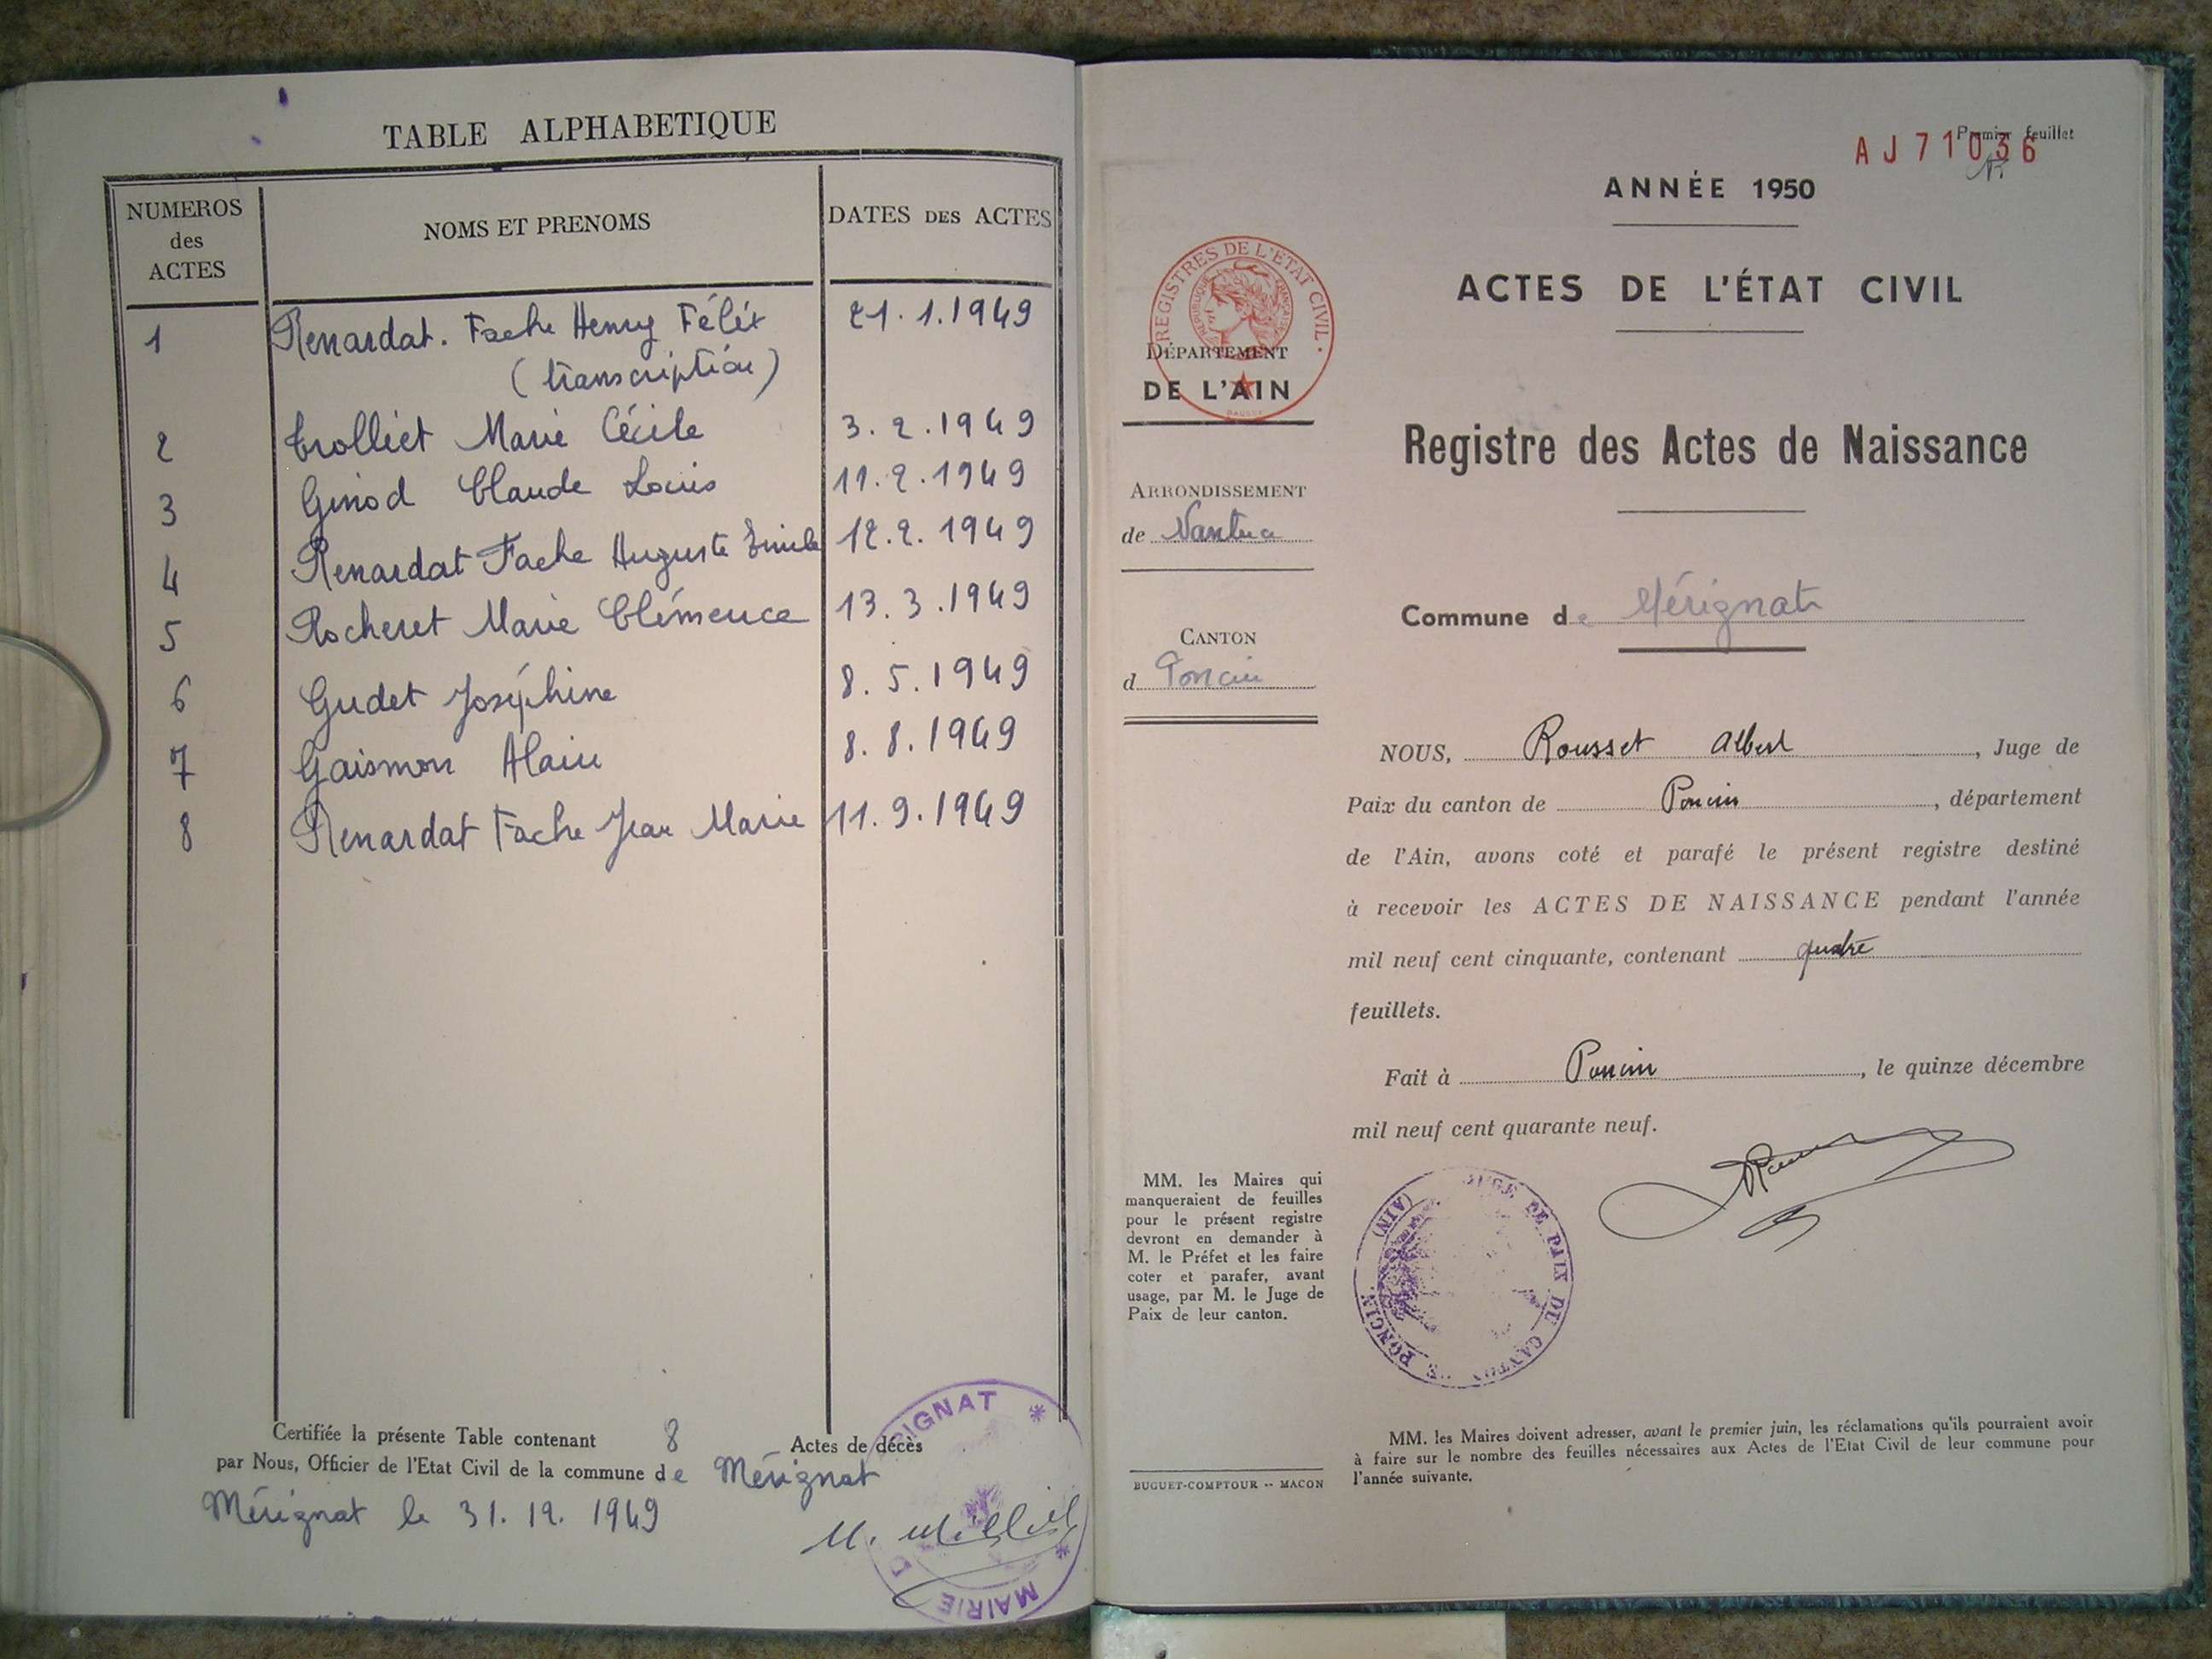 TABLE ALPHABETIQUE
NUMEROS des ACTES
NOMS ET PRENOMS
DATES DES ACTES
1 Renardat. Fache Henry Félix 21.1.1949
(transcription)
2 Trolliet Marie Cécile 3.2.1949
3 Ginod Claude Louis 11.2.1949
4 Renardat Fache Auguste Emile 12.2.1949
5 Rocheret Marie Clémence 13.3.1949
6 Gudet Joséphine 8.5.1949
7 Gaismon Alain 8.8.1949
8 Renardat Fache Jean Marie 11.9.1949
Certifiée la présente Table contenant 8 Actes de décès
par Nous, Officier de l'Etat Civil de la commune de Mérignat
Mérignat le 31.12.1949
MAIRIE
RIGNAT
Premier feuillet
AJ71036
ANNÉE 1950
ACTES DE L'ÉTAT CIVIL
REGISTRES DE L'ETAT CIVIL
REPUBLIQUE FRANÇAISE
DÉPARTEMENT
DE L'AIN
Registre des Actes de Naissance
ARRONDISSEMENT
de Nantua
Commune de Mérignat
CANTON
d Poncin
NOUS, Rousset Albert, Juge de
Paix du canton de Poncin, département
de l'Ain, avons coté et parafé le présent registre destiné
à recevoir les ACTES DE NAISSANCE pendant l'année
mil neuf cent cinquante, contenant quatre
feuillets.
Fait à Poncin, le quinze décembre
mil neuf cent quarante neuf.
MM. les Maires qui
manqueraient de feuilles
pour le présent registre
devront en demander à
M. le Préfet et les faire
coter et parafer, avant
usage, par M. le Juge de
Paix de leur canton.
JUGE DE PAIX DU CANTON DE PONCIN (AIN)
MM. les Maires doivent adresser, avant le premier juin, les réclamations qu'ils pourraient avoir
à faire sur le nombre des feuilles nécessaires aux Actes de l'Etat Civil de leur commune pour
l'année suivante.
BUGUET-COMPTOUR -- MACON